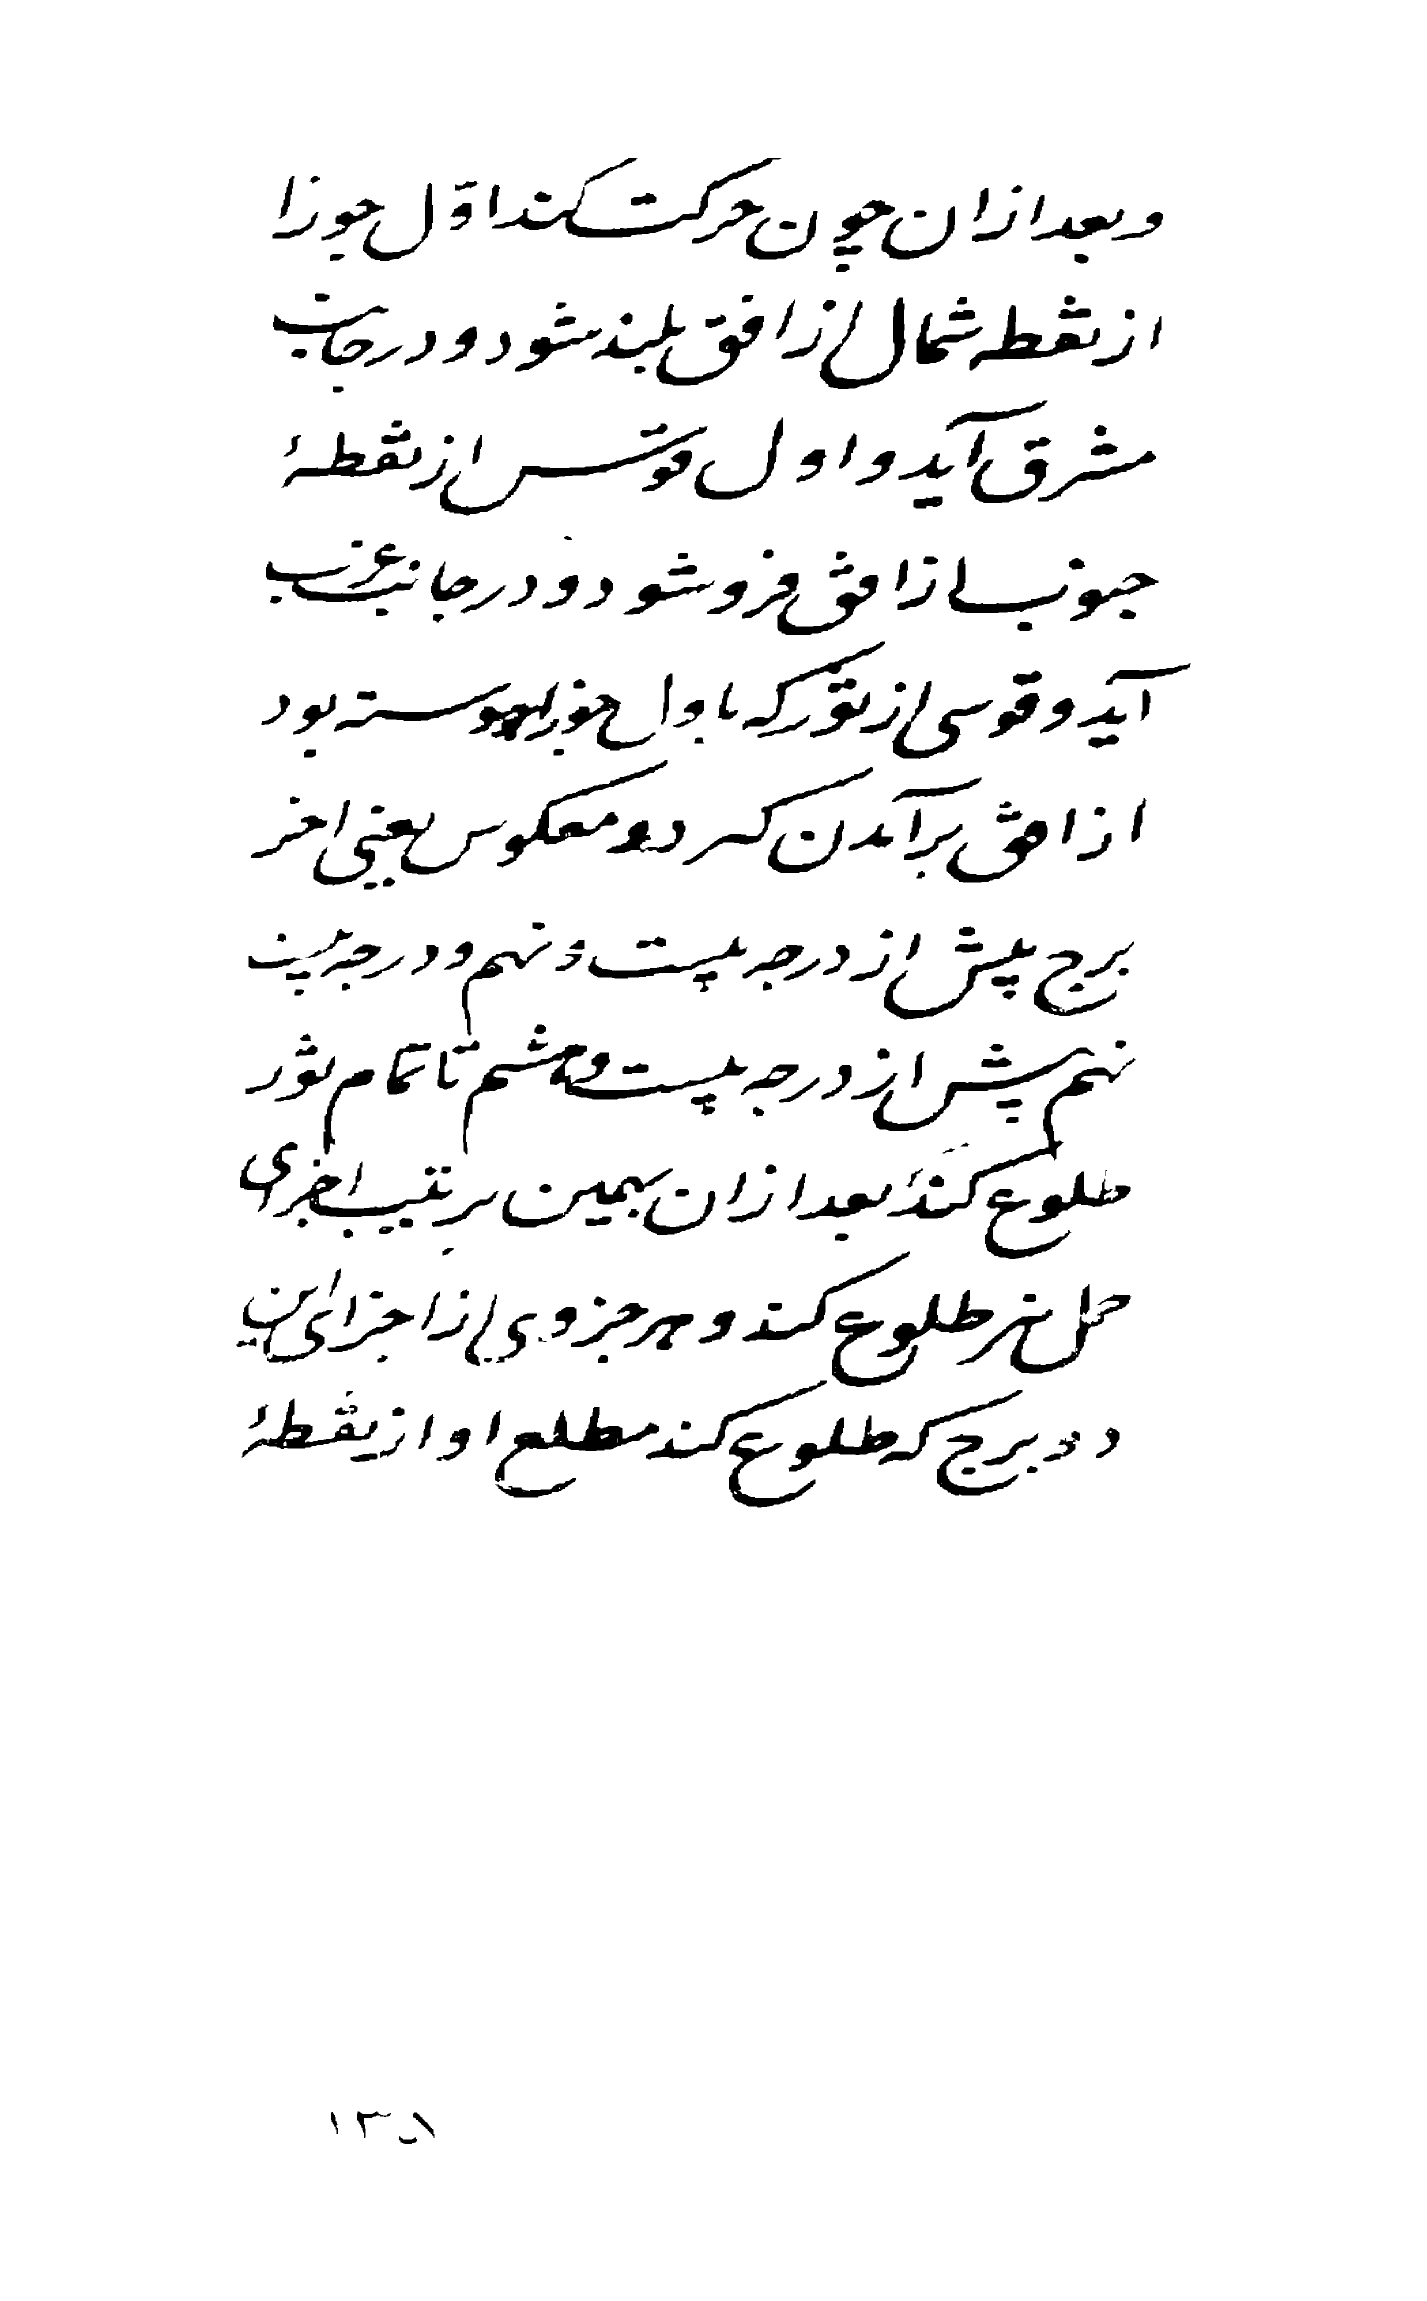 و بعد ازان چون حرکت کند اوّل جوزا
از نقطه شمال از افق بلند شود و در جانب
مشرق آید و اول قوس از نقطهٔ
جنوب از افق فرو شود و در جانب غرب
آید و قوسی از ثور که باول جوزا پیوسته بود
از افق برآمدن کیرد و معکوس یعنی اخر
برج پیش از درجه بیست و نهم و درجه بیست
نهم پیش از درجه بیست و هشتم تا تمام ثور
طلوع کند بعد ازان بهمین ترتیب اجزای
حمل نیز طلوع کند و هر جزوی از اجزای این
دو برج که طلوع کند مطلع او از نقطهٔ